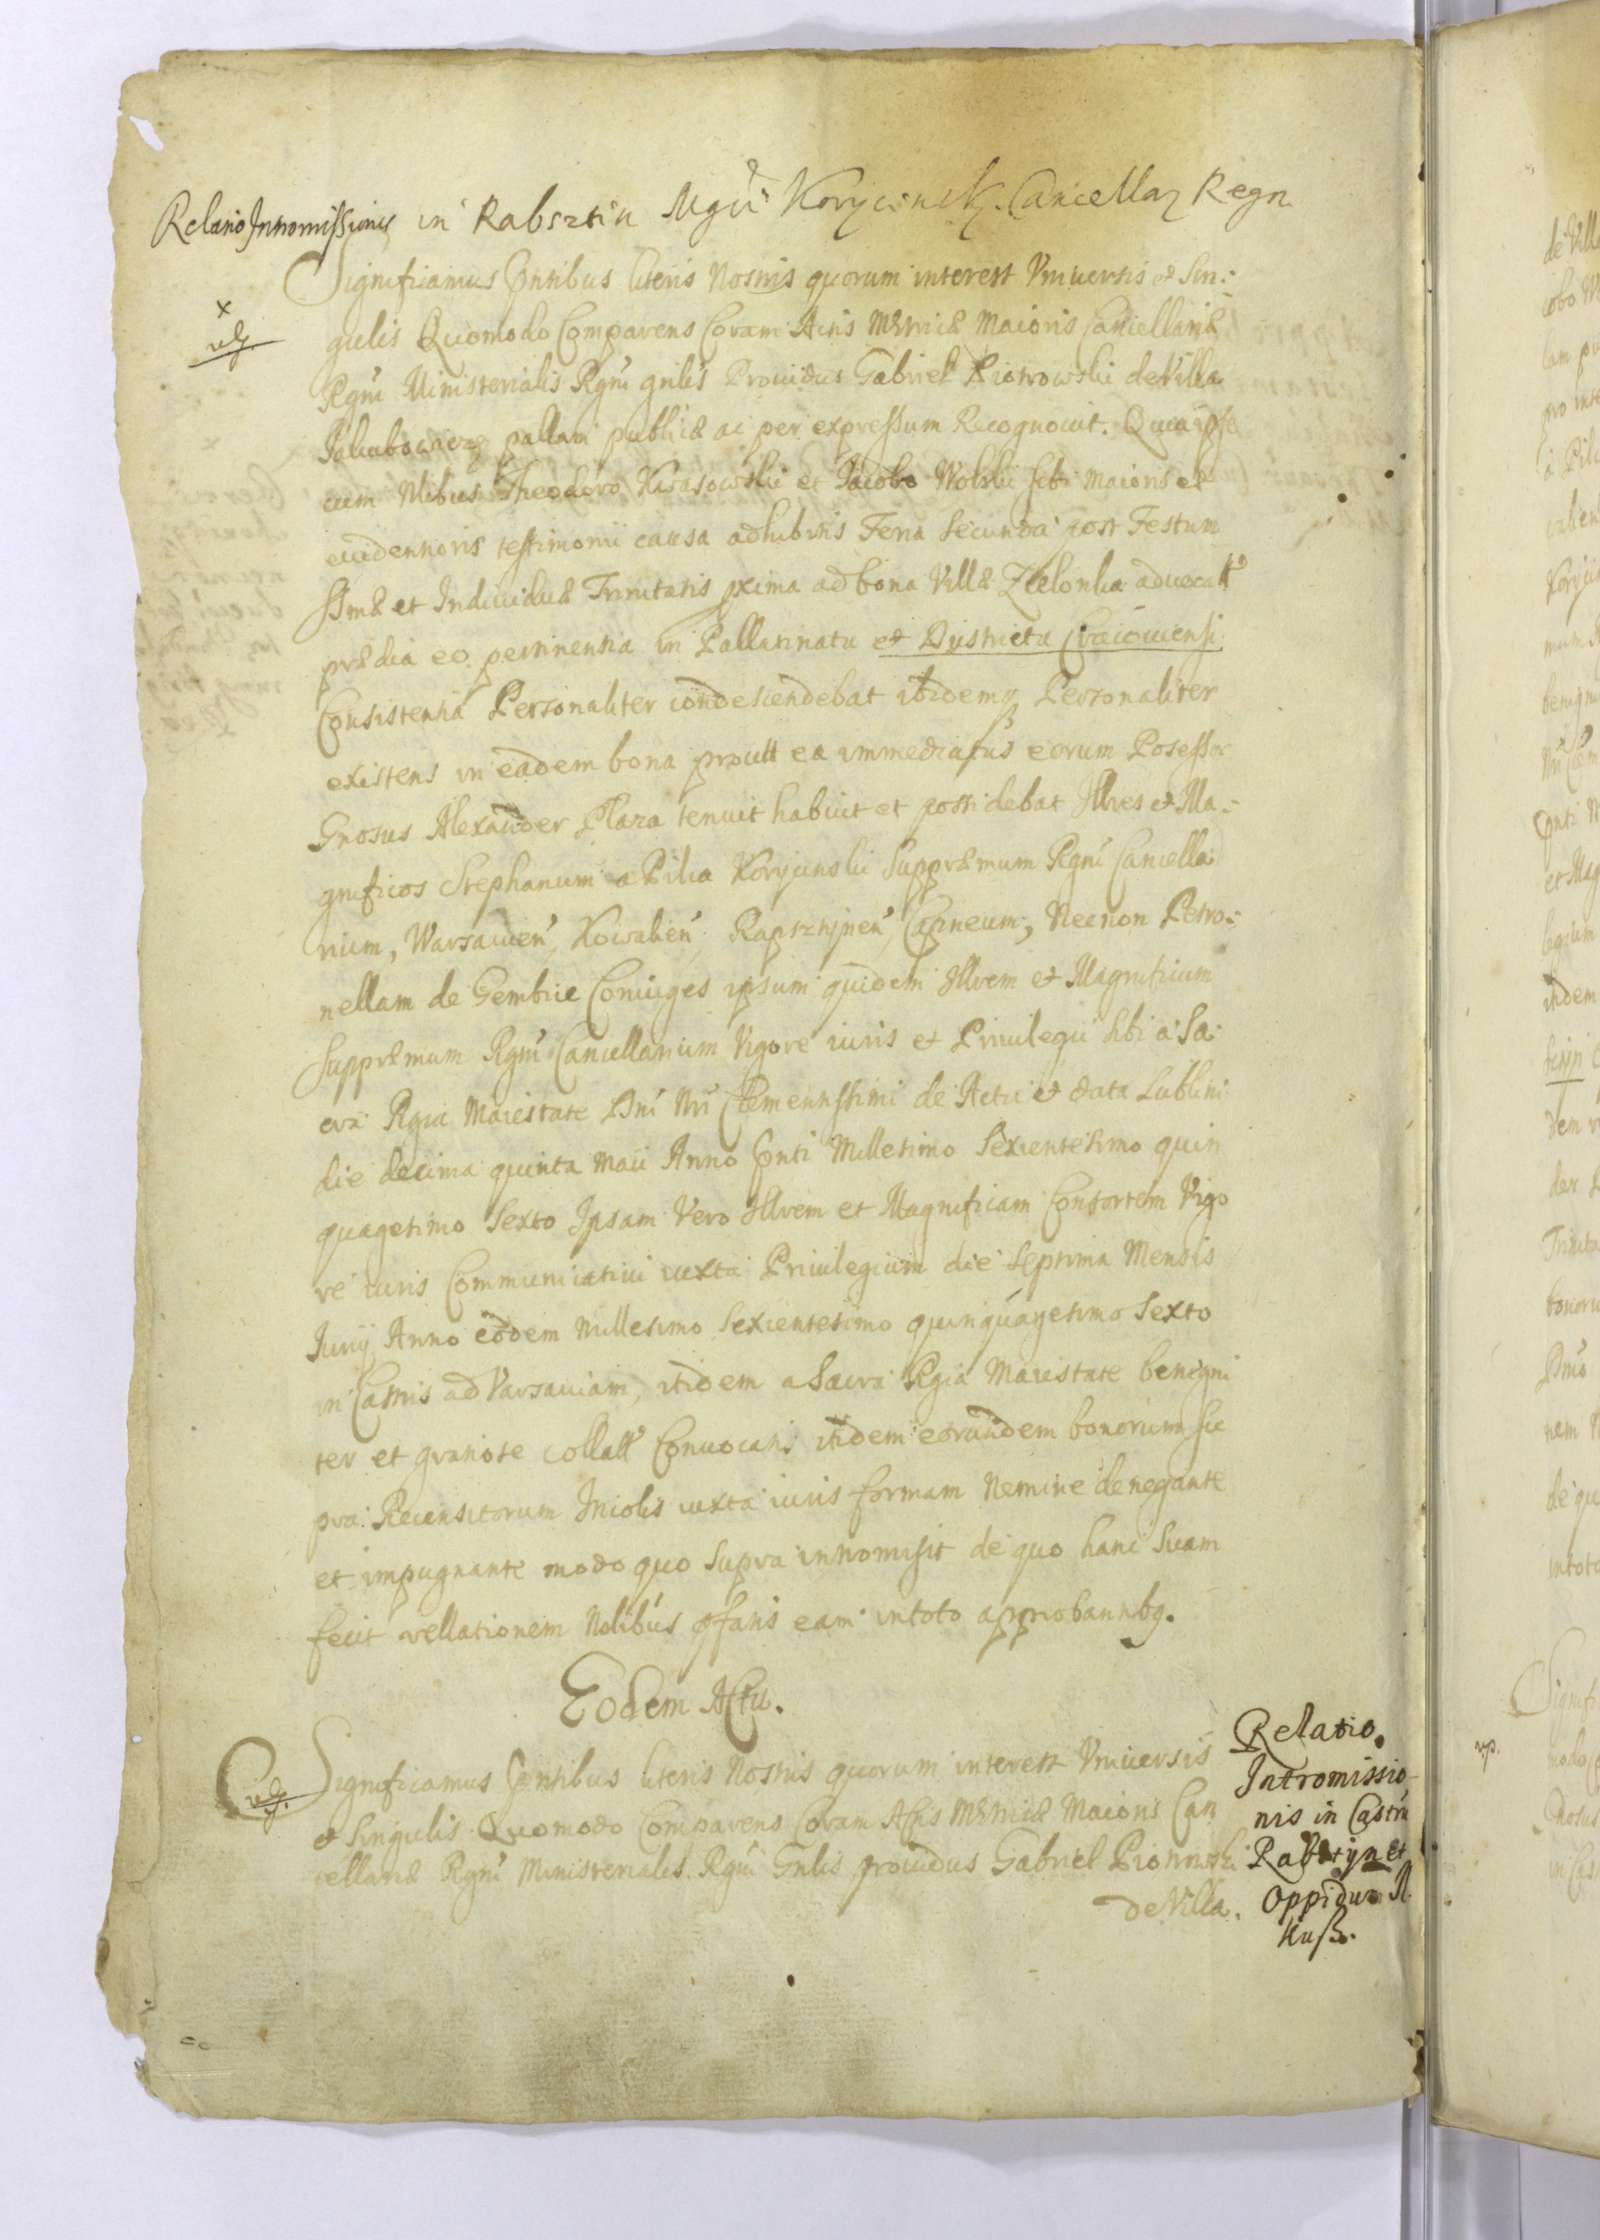 Relatio Intromissionis in Rabsztin Mgci Korycinsk. Cancellar Regn
Significamus pntibus literis Nostris quorum interest Vniuersis et Sin:
x
vdj.
gulis Quomodo Comparens Coram Actis Metricæ Maioris Cancellariæ
Rgni Ministerialis Rgni gnlis Prouidus Gabriel Piotrowski de Villa
Jakubowice palam publicæ ac per expressum Recognouit. Quia ipse
cum Nlibus Theodoro Kwasowski et Jacobo Wolski sibi Maioris et
euidentioris testimonii causa adhibitis Feria Secunda post Festum
SSmæ et Indiuiduæ Trinitatis pxima ad bona Villæ Zielonka aduocatt
prædia eo pertinentia in Pallatinatu et Districtu Cracouiensi
Consistentia Personaliter condescendebat ibidemq Personaliter
existens in eadem bona proutt ea immediatus eorum Posessor
Gnosus Alexander Plaza tenuit habuit et possidebat Illres et Ma:
gnificos Stephanum a Pilca Korycinski Suppræmum Rgni Cancella
rium, Warsauien, Kowalien Rapsztynen, Capneum, Necnon Petro:
nellam de Gembice Coniuges ipsum quidem Illrem et Magnificum
Suppræmum Rgni Cancellarium Vigore iuris et Priuilegii sibi a Sa:
cra Rgia Maiestate Dni Nri Clementissimi de Actu et data Lublini
die decima quinta Maii Anno pnti Millesimo Sexientesimo quin
quagesimo Sexto Ipsam Vero Illrem et Magnificam Consortem Vigo
re iuris Communicatiui iuxta Priuilegium die Septima Mensis
Iunij Anno eodem Millesimo Sexientesimo quinquagesimo Sexto
in Castris ad Varsauiam, itidem a Sacra Rgia Maiestate benigni
ter et gratiose collatt Conuocatis itidem eorundem bonorum su
pra Recensitorum Incolis iuxta iuris formam Nemine denegante
et impugnante modo quo Supra intromisit de quo hanc Suam
fecit rellationem Nobilibus pfatis eam in toto approbantibq.
Eodem Actu.
vdj.
Significamus pntibus literis Nostris quorum interest Vniuersis
et Singulis Quomodo Comparens Coram Actis Metricæ Maioris Can
cellariæ Rgni Ministerialis Rgni Gnlis prouidus Gabriel Piotrowski
de Villa.
Relatio
Intromissio-
nis in Castru
Rabstyn et
Oppidum Il
kusz.